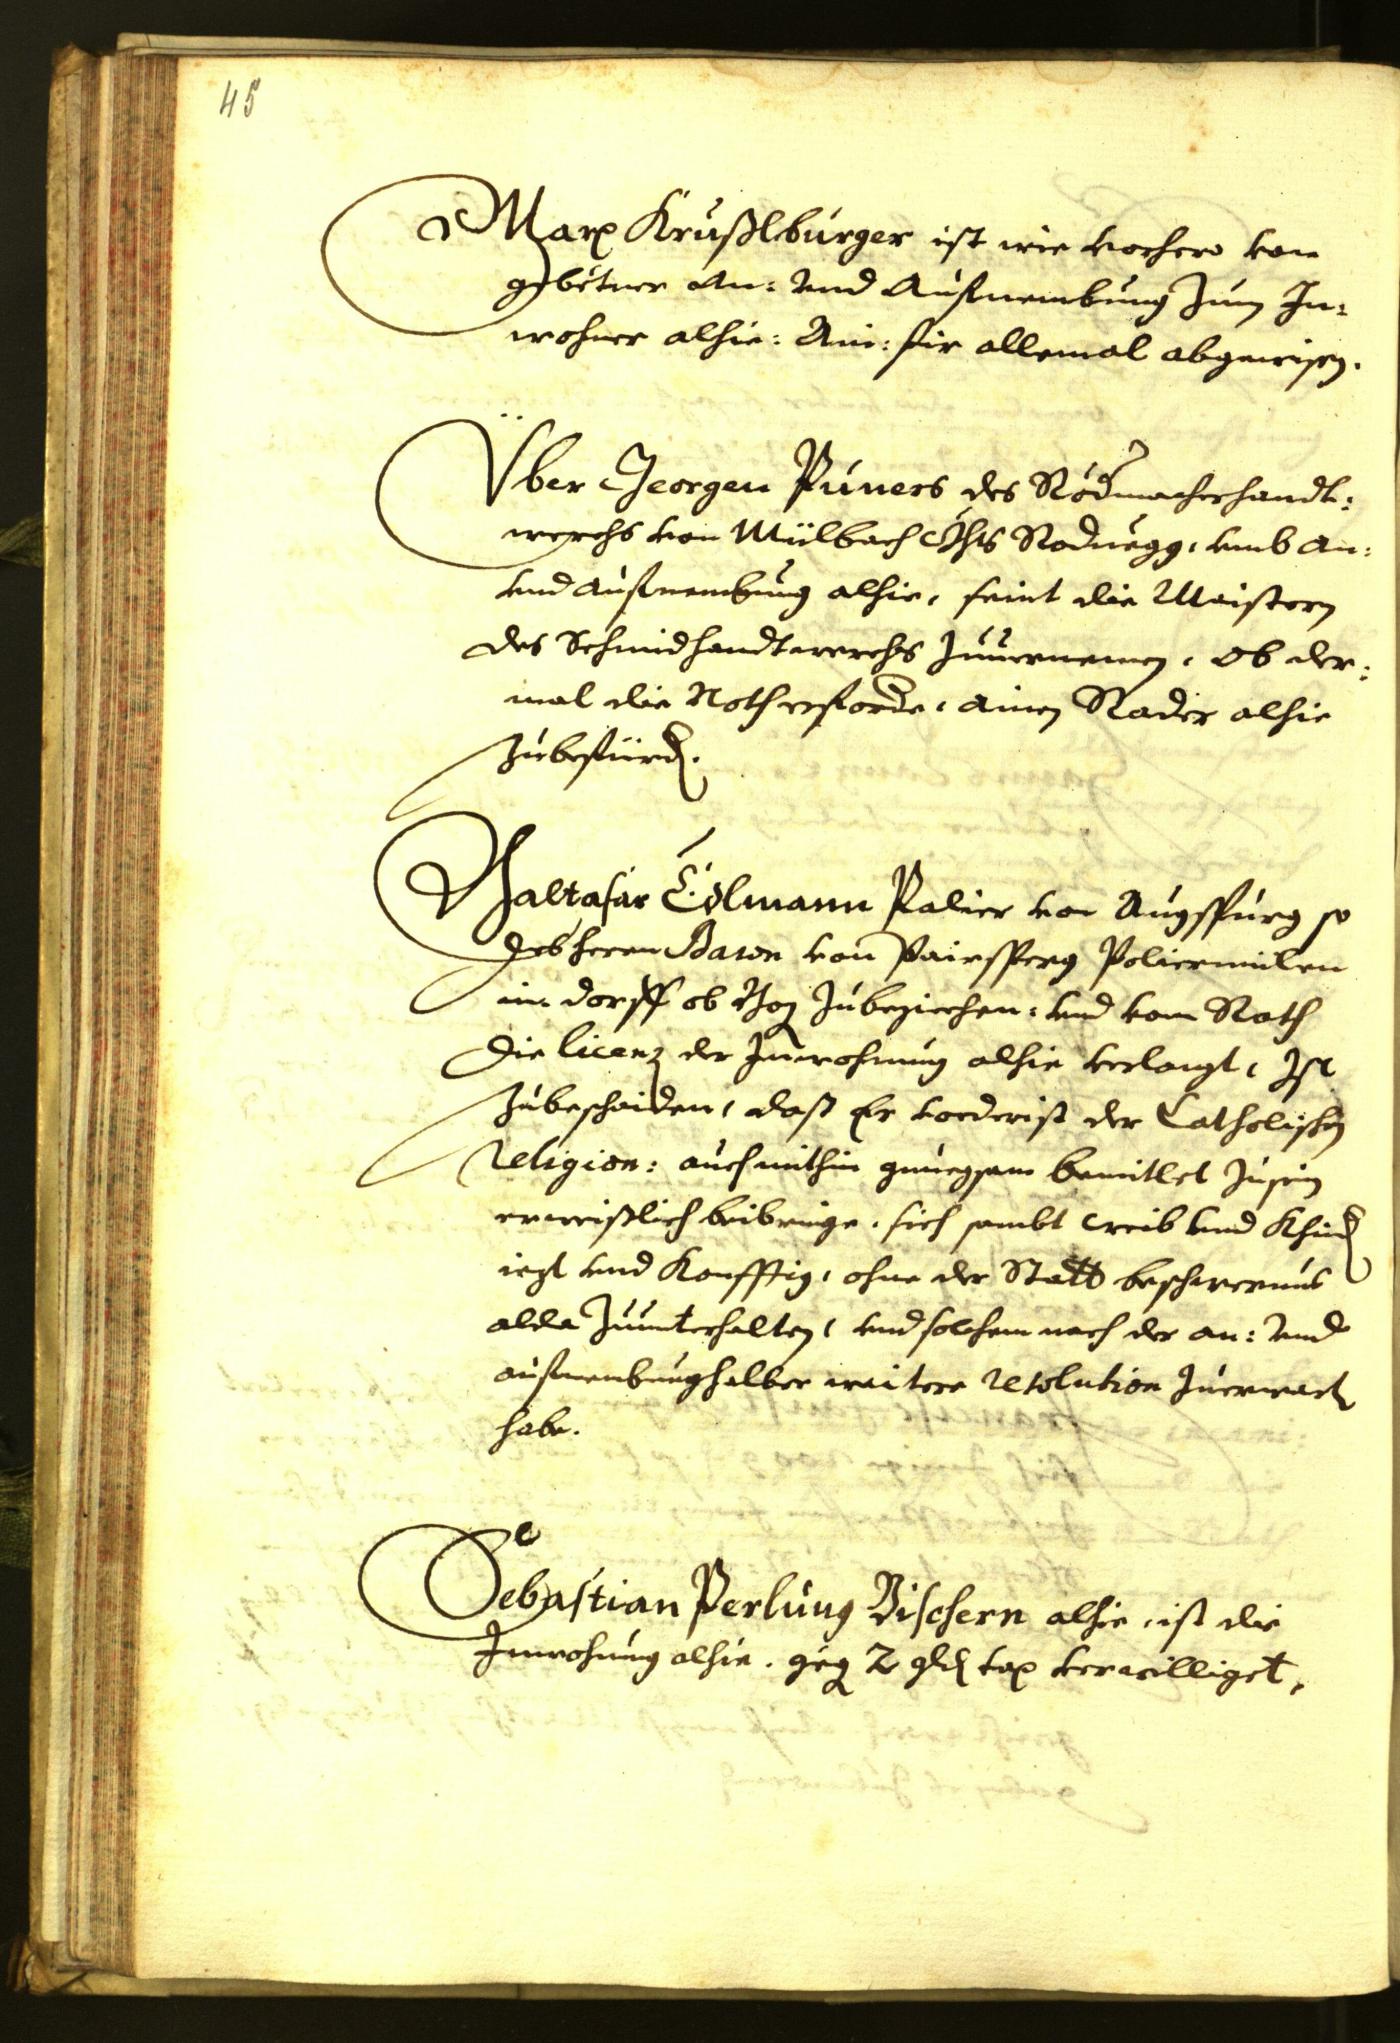 45
Marx Krußlburger ist wie vorhero von
gebetner An: und Aufnembung zum In:
wohner alhie: Ain: fir allemal abgewisen.
Über Georgen Puners des Röd͠macherhandt:
werchs von Mülbach Ghts Rodnegg, umb An:
und Aufnembung alhie, seint die Maistern
des Schmidhandtwerchs zuuernemen, ob der:
mal die Noth erfordre, ainen Rader alhie
zubefürd.
Baltasar Edlmann Palier von Augspurg so
des herrn Baron von Pairsperg Poliermülen
im dorff ob Boz zubeziechen: und vom Rath
die licenz der Inwohnung alhie verlangt, Ist
zubeschaiden, daß Er vorderist der Catholischen
religion: auch mithin gnuegsam bemitlet zusein
erweißlich beibringe, sich sambt weib und Khind
iezt und Konfftig, ohne der Statt beschwernus
alda zuunterhalten, und solchem nach der an: und
aufnembung halber weitere resolution zuerwart
habe.
Sebastian Perlung Vischern alhie, ist die
Inwohnung alhie, geg 2 gld tax verwilliget.